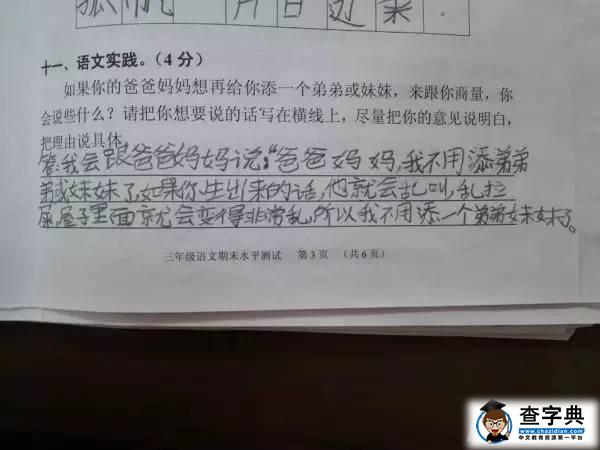 片百边来。
十一、语文实践。(4分)
如果你的爸爸妈妈想再给你添一个弟弟或妹妹，来跟你商量，你
会说些什么？请把你想要说的话写在横线上，尽量把你的意见说明白，
把理由说具体。
答:我会跟爸爸妈妈说:“爸爸妈妈,我不用添弟弟
弟或妹妹了,如果你生出来的话,他就会乱叫,乱拉
屎,屋子里面就会变得非常乱,所以我不用添一个弟弟妹妹了。
三年级语文期末水平测试 第3页 （共6页）
查字典
www.chazidian.com
中文教育资源第一平台